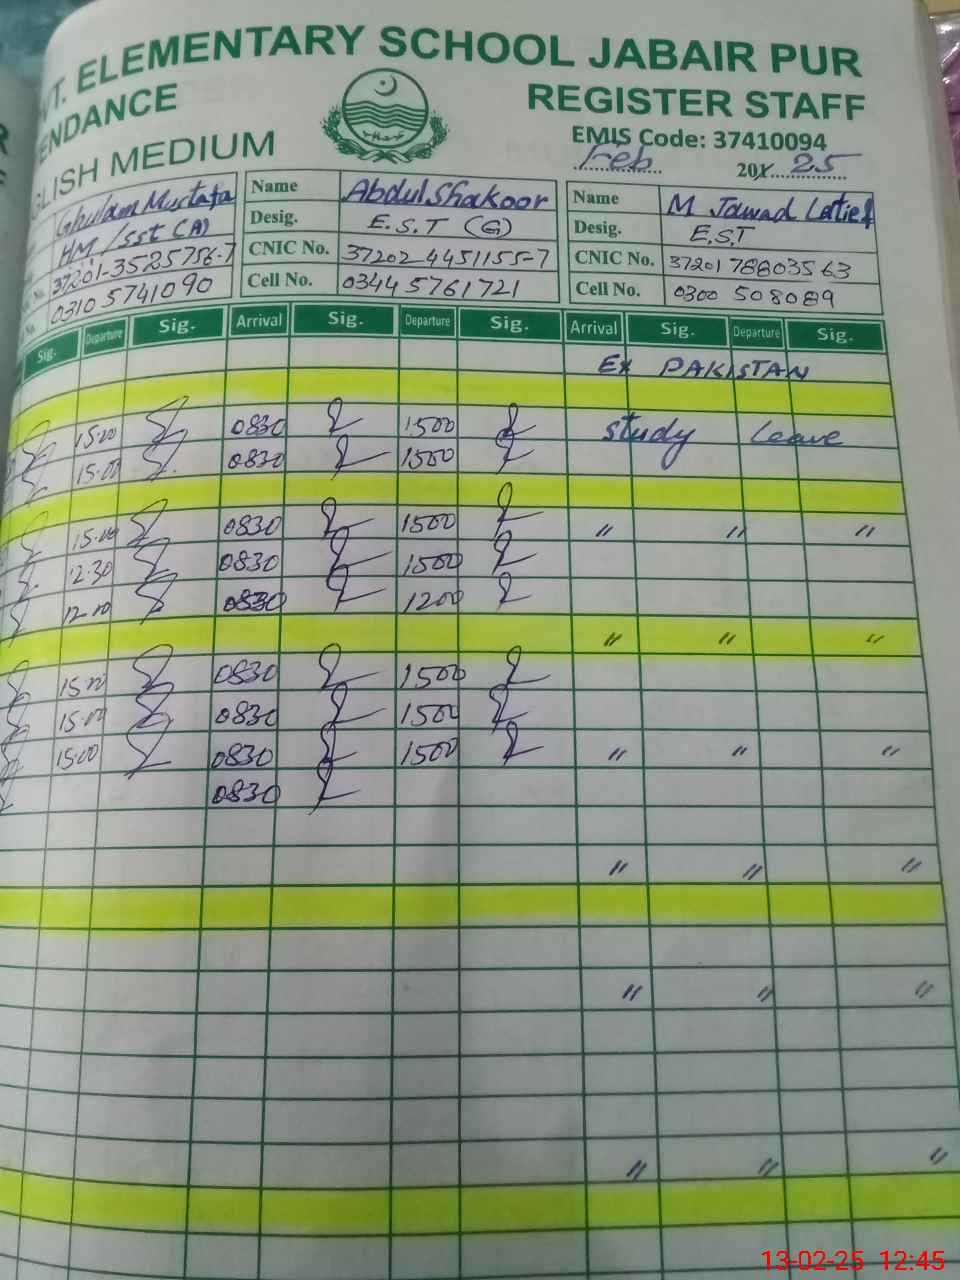 VT. ELEMENTARY SCHOOL JABAIR PUR
ENDANCE REGISTER STAFF
GLISH MEDIUM EMIS Code: 37410094
Feb 20 25
Ghulam Mustafa Name Abdul Shakoor Name M Jawad Latief
HM / SST (A) Desig. E.S.T (G) Desig. E.S.T
37201-3525756-7 CNIC No. 37202-4451155-7 CNIC No. 3720178803563
0310 5741090 Cell No. 0344 5761721 Cell No. 0300 508089
Sig. Departure Sig. Arrival Sig. Departure Sig. Arrival Sig. Departure Sig.
Ex PAKISTAN
15.00 0830 1500 study Leave
15.00 0830 1500
15.00 0830 1500 " " "
12.30 0830 1500
12.00 0830 1200
" " "
15.00 0830 1500
15.00 0830 1500
15.00 0830 1500 " " "
0830
" " "
" " "
" " "
13-02-25 12:45